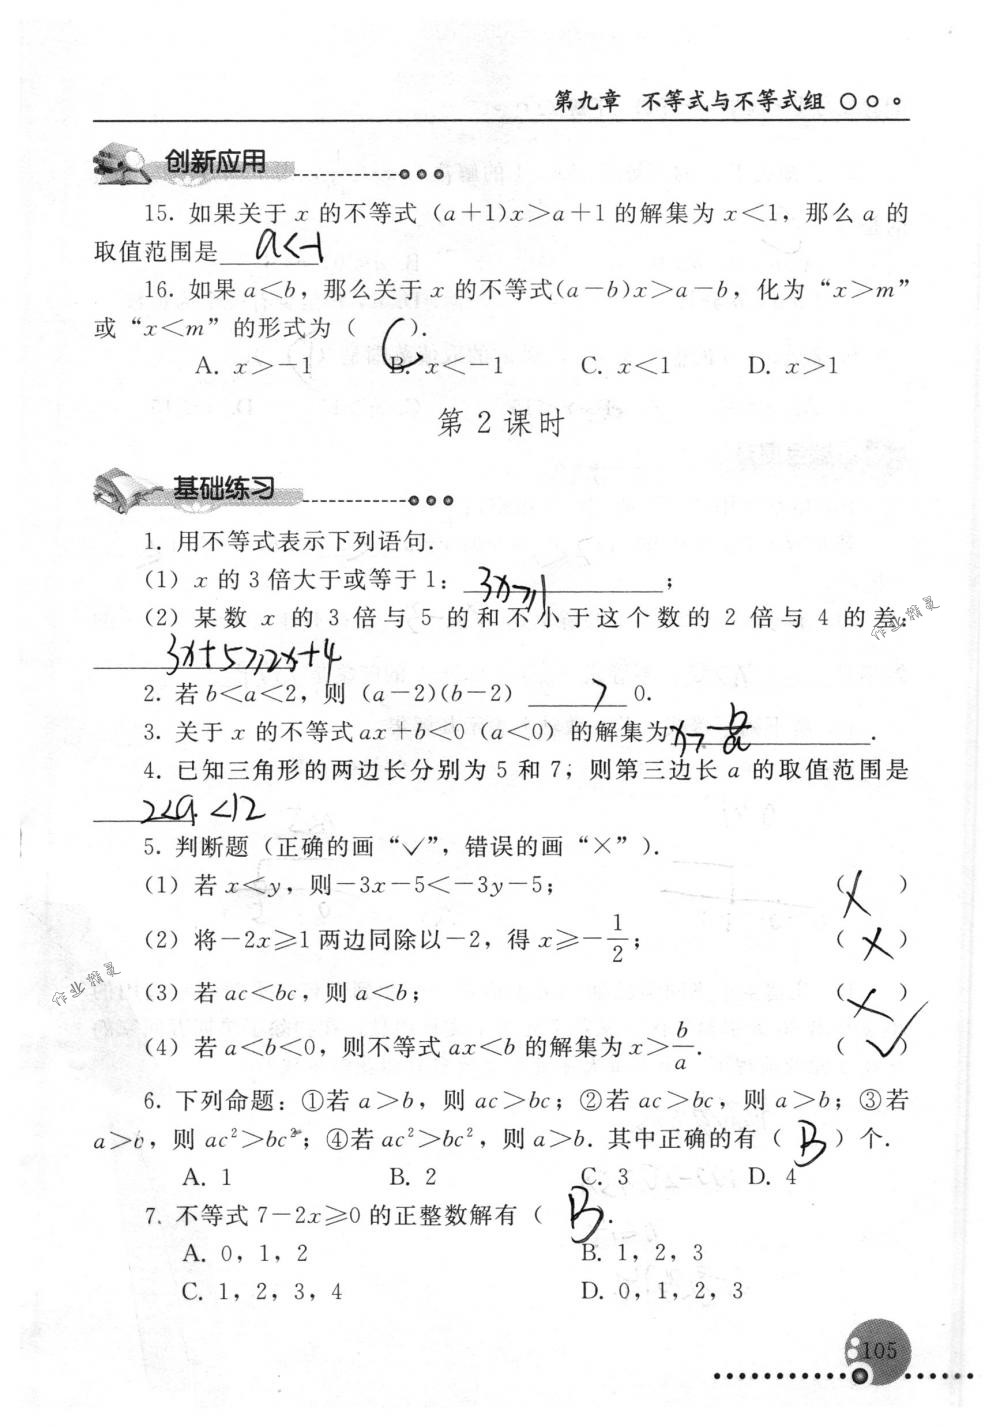 第九章 不等式与不等式组
创新应用
15. 如果关于 x 的不等式 (a+1)x>a+1 的解集为 x<1，那么 a 的
取值范围是 a<-1
16. 如果 a<b，那么关于 x 的不等式(a-b)x>a-b，化为“x>m”
或“x<m”的形式为（ C ）.
A. x>-1 B. x<-1 C. x<1 D. x>1
第 2 课时
基础练习
1. 用不等式表示下列语句.
(1) x 的 3 倍大于或等于 1： 3x≥1 ；
(2) 某数 x 的 3 倍与 5 的和不小于这个数的 2 倍与 4 的差：
3x+5≥2x+4
2. 若 b<a<2，则 (a-2)(b-2) > 0.
3. 关于 x 的不等式 ax+b<0 (a<0) 的解集为 x>-b/a .
4. 已知三角形的两边长分别为 5 和 7，则第三边长 a 的取值范围是
2<a<12
5. 判断题（正确的画“✓”，错误的画“×”）.
(1) 若 x<y，则-3x-5<-3y-5； （ × ）
(2) 将-2x≥1 两边同除以-2，得 x≥-1/2； （ × ）
(3) 若 ac<bc，则 a<b； （ × ）
(4) 若 a<b<0，则不等式 ax<b 的解集为 x>b/a. （ ✓ ）
6. 下列命题：①若 a>b，则 ac>bc；②若 ac>bc，则 a>b；③若
a>b，则 ac²>bc²；④若 ac²>bc²，则 a>b. 其中正确的有（ B ）个.
A. 1 B. 2 C. 3 D. 4
7. 不等式 7-2x≥0 的正整数解有（ B .
A. 0，1，2 B. 1，2，3
C. 1，2，3，4 D. 0，1，2，3
105
作业精灵
作业精灵